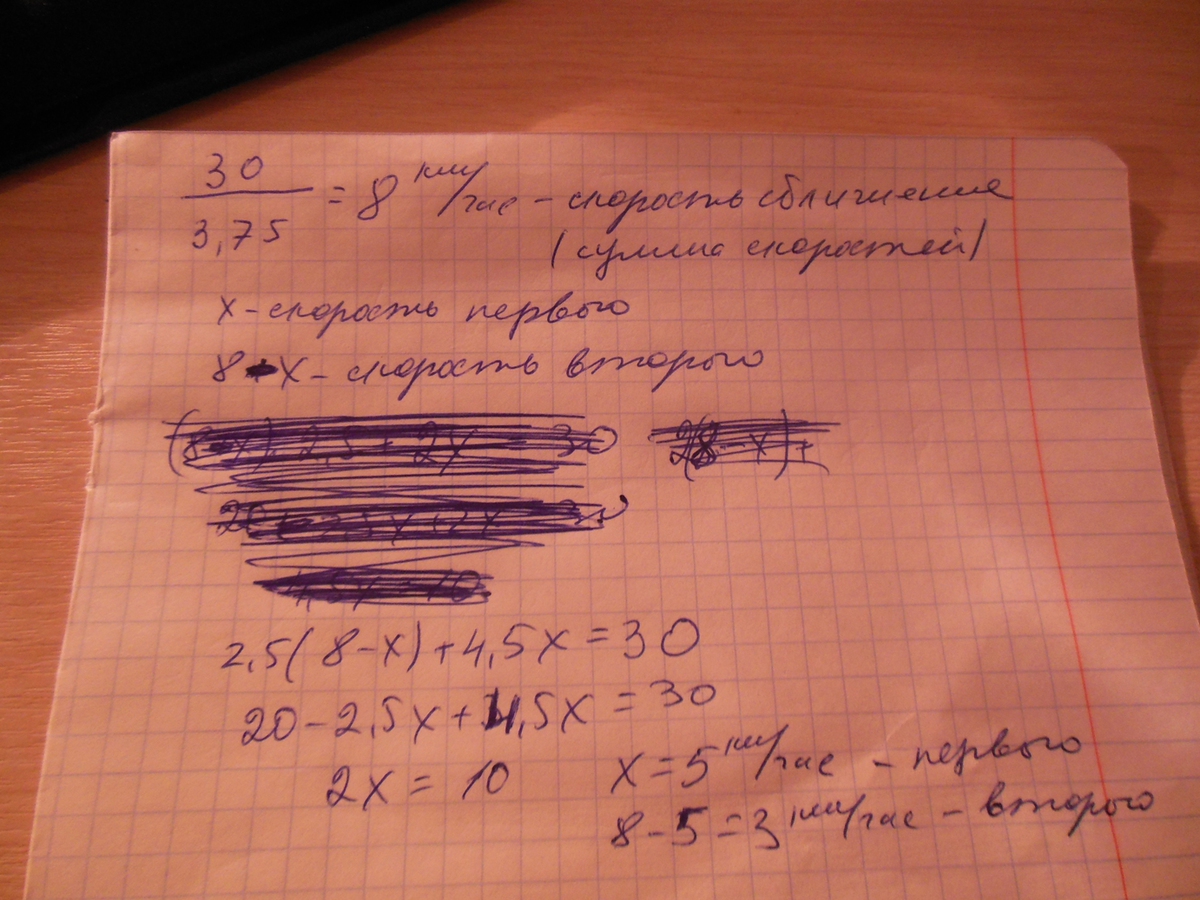 30
3,75
= 8 км/час - скорость сближения
(сумма скоростей)
x - скорость первого
8 - x - скорость второго
2,5(8-x)+4,5x=30
20-2,5x+4,5x=30
2x = 10
x=5 км/час - первого
8-5=3 км/час - второго